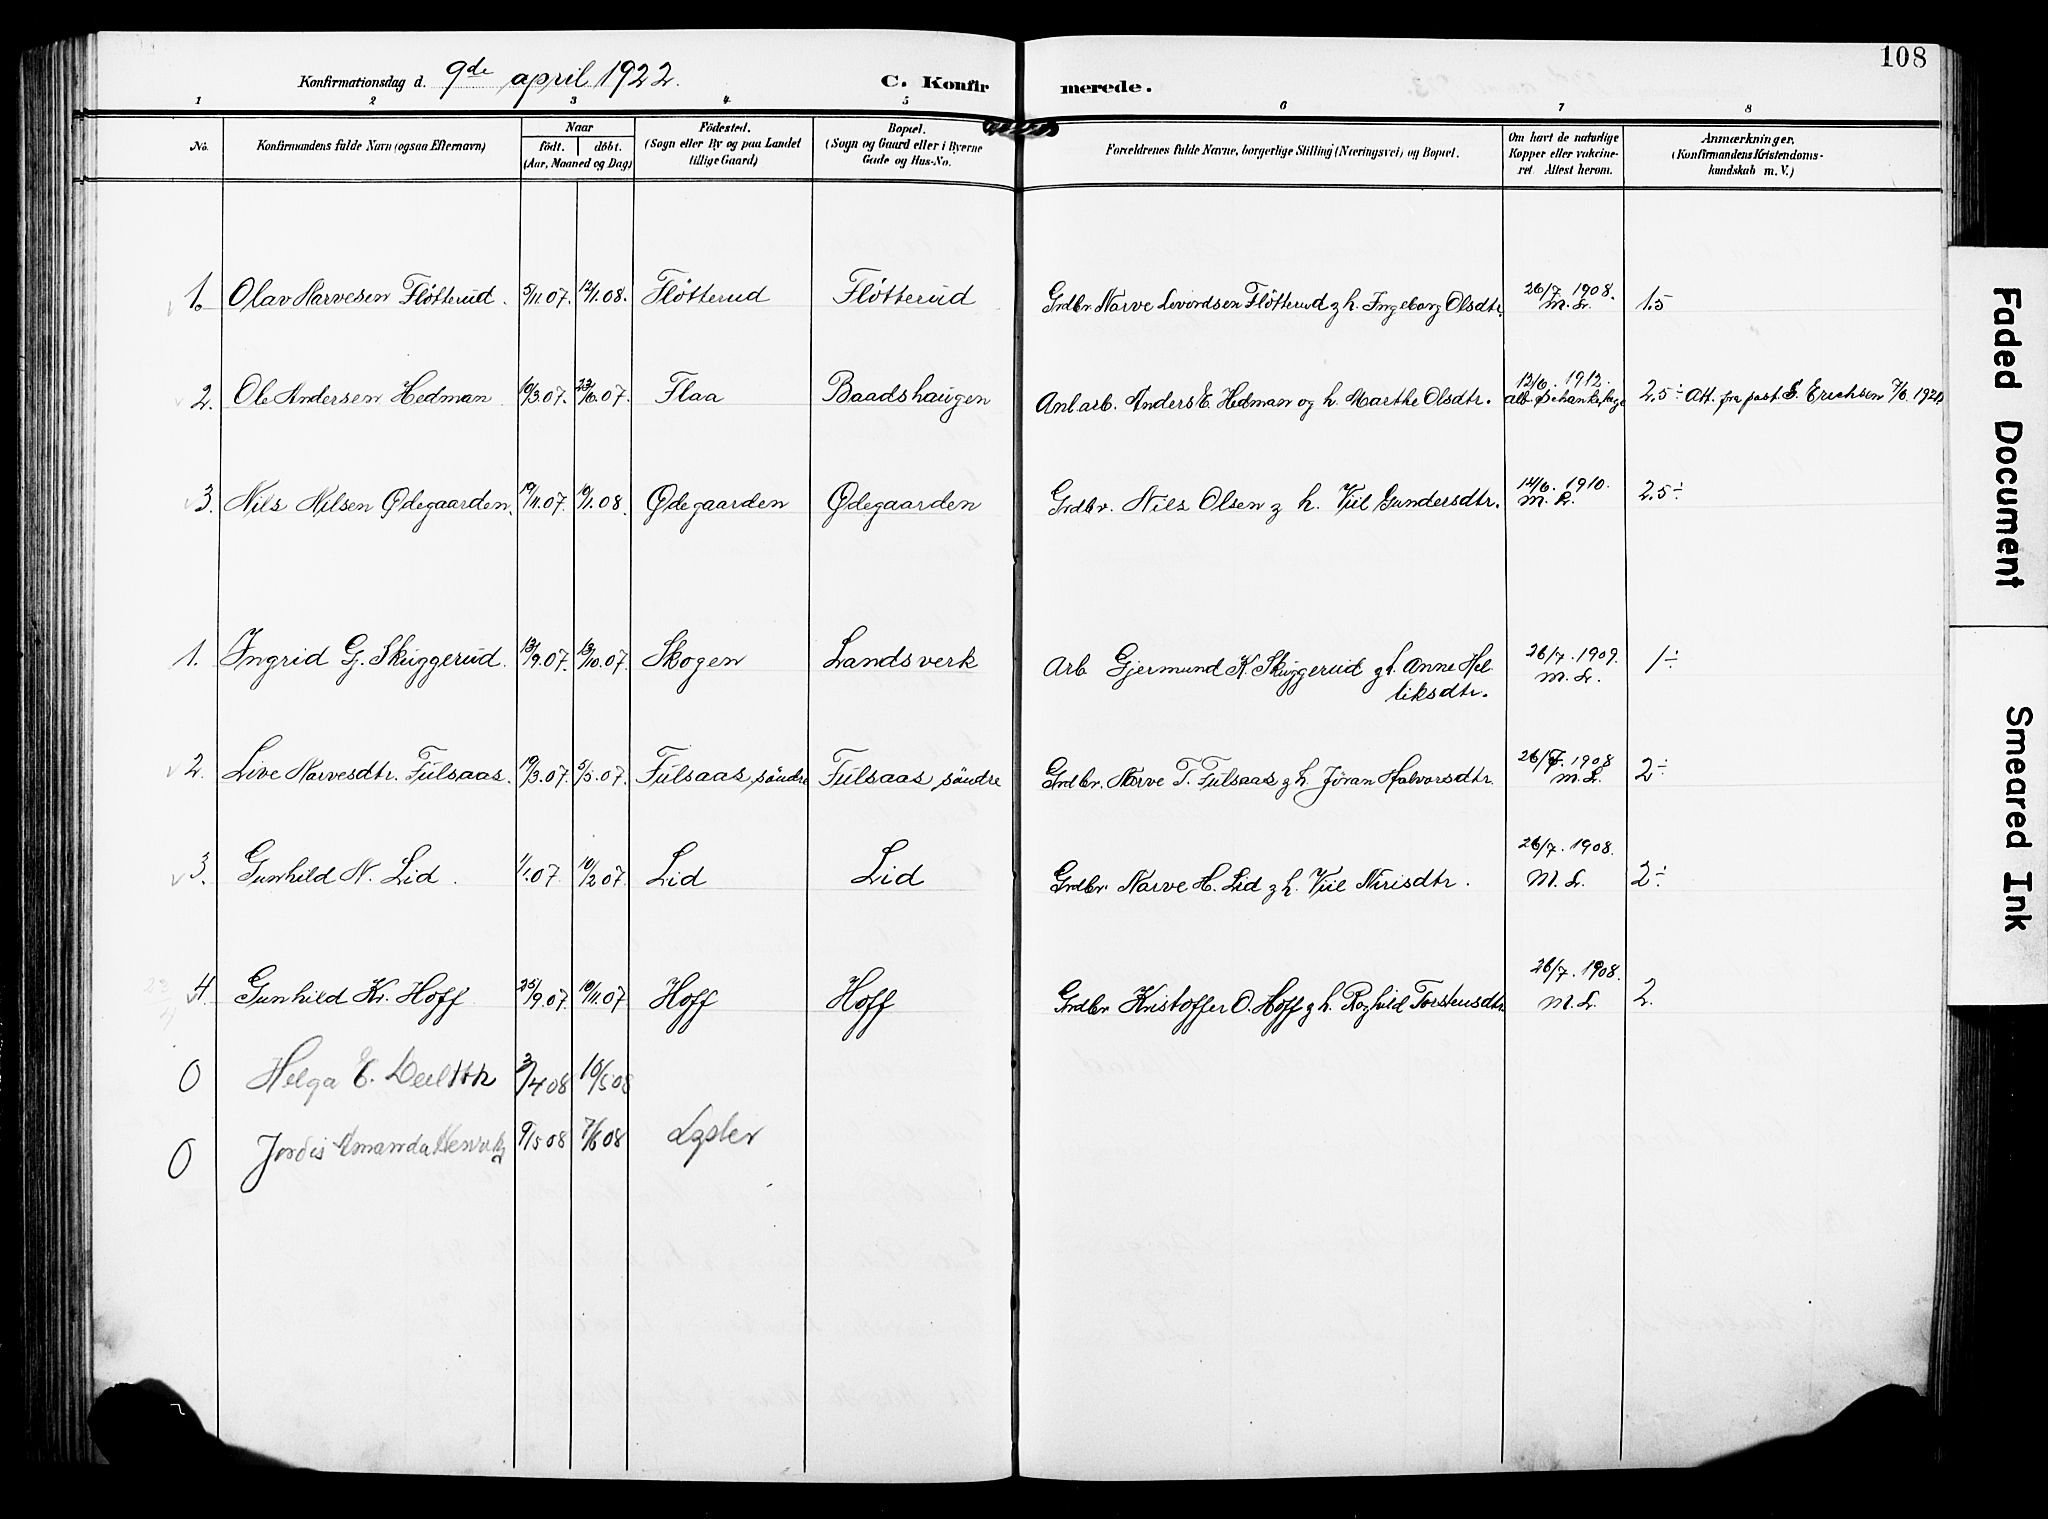 108
Konfirmationsdag d. 9de april 1922. C. Konfir merede.
1 2 3 4 5 6 7 8
No. Konfirmandens fulde Navn (ogsaa Efternavn) Naar født. døbt. (Aar, Maaned og Dag) Fødested. (Sogn eller By og paa Landet tillige Gaard) Bopæl. (Sogn og Gaard eller i Byerne Gade og Hus-No. Forældrenes fulde Navne, borgerlige Stilling (Næringsvei) og Bopæl. Om havt de naturlige Kopper eller vakcineret. Attest herom. Anmærkninger. (Konfirmandens Kristendomskundskab m. V.)
1. Olav Narvesen Fløtterud. 5/11.07. 12/1.08. Fløtterud Fløtterud Grdbr. Narve Levordsen Fløtterud g h. Ingeborg Olsdtr. 26/7. 1908. M. L. 1.5
2. Ole Andersen Hedman 10/3.07. 23/6.07. Flaa Baadshaugen Anl.arb. Anders E. Hedman og h. Marthe Olsdtr. 12/6. 1912. 2.5 ÷ Att. fra past. S. Erichsen 7/6.
3. Nils Nilsen Ødegaarden. 19/11.07. 10/1.08. Ødegaarden Ødegaarden Grdbr. Nils Olsen g h. Viil Gundersdtr. 14/6. 1910. M. R. 2.5 ÷
1. Ingrid G. Skuggerud. 13/9.07. 13/10.07. Skogen Landsverk Arb. Gjermund K. Skuggerud g h. Anne Hel-
liksdtr. 26/7. 1909. M. L. 1 ÷
2. Live Narvesdtr. Fulsaas. 19/3.07. 5/5.07. Fulsaas, søndre Fulsaas, søndre Grdbr. Narve T. Fulsaas g h. Jøran Halvorsdtr. 26/7. 1908 M. L. 2 ÷
3. Gunhild N. Lid. 1/1.07. 10/2.07. Lid Lid Grdbr. Narve H. Lid g h. Viil Nirisdtr. 26/7. 1908. M. L. 2 ÷
4. Gunhild Kr. Hoff 25/9.07. 10/11.07 Hoff Hoff Grdbr. Kristoffer O. Hoff g h. Roghild Torstensdtr. 26/7. 1908. M. L. 2.
0 Helga E. 3/4 08 10/5 08
0 Jordis Amanda 9/5 08 7/6 08
Faded Document
Smeared Ink